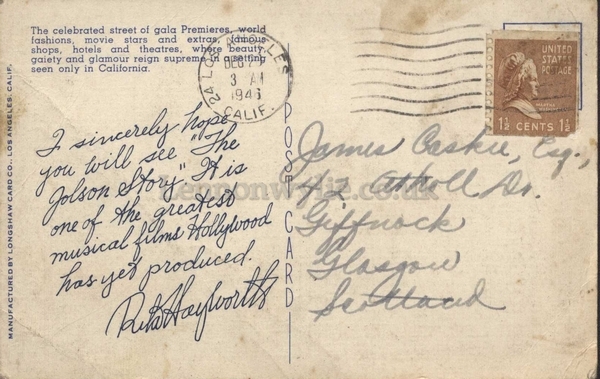 The celebrated street of gala Premieres, world
fashions, movie stars and extras, famous
shops, hotels and theatres, where beauty,
gaiety and glamour reign supreme in a setting
seen only in California.
LOS ANGELES
DEC 2
3 AM
1946
CALIF.
UNITED
STATES
POSTAGE
1½ CENTS 1½
MANUFACTURED BY LONGSHAW CARD CO., LOS ANGELES, CALIF.
POST CARD
I sincerely hope
you will see "The
Jolson Story". It is
one of the greatest
musical films Hollywood
has yet produced.
Rita Hayworth
James Caskie, Esq.,
42 Atholl Dr.
Giffnock
Glasgow
Scotland